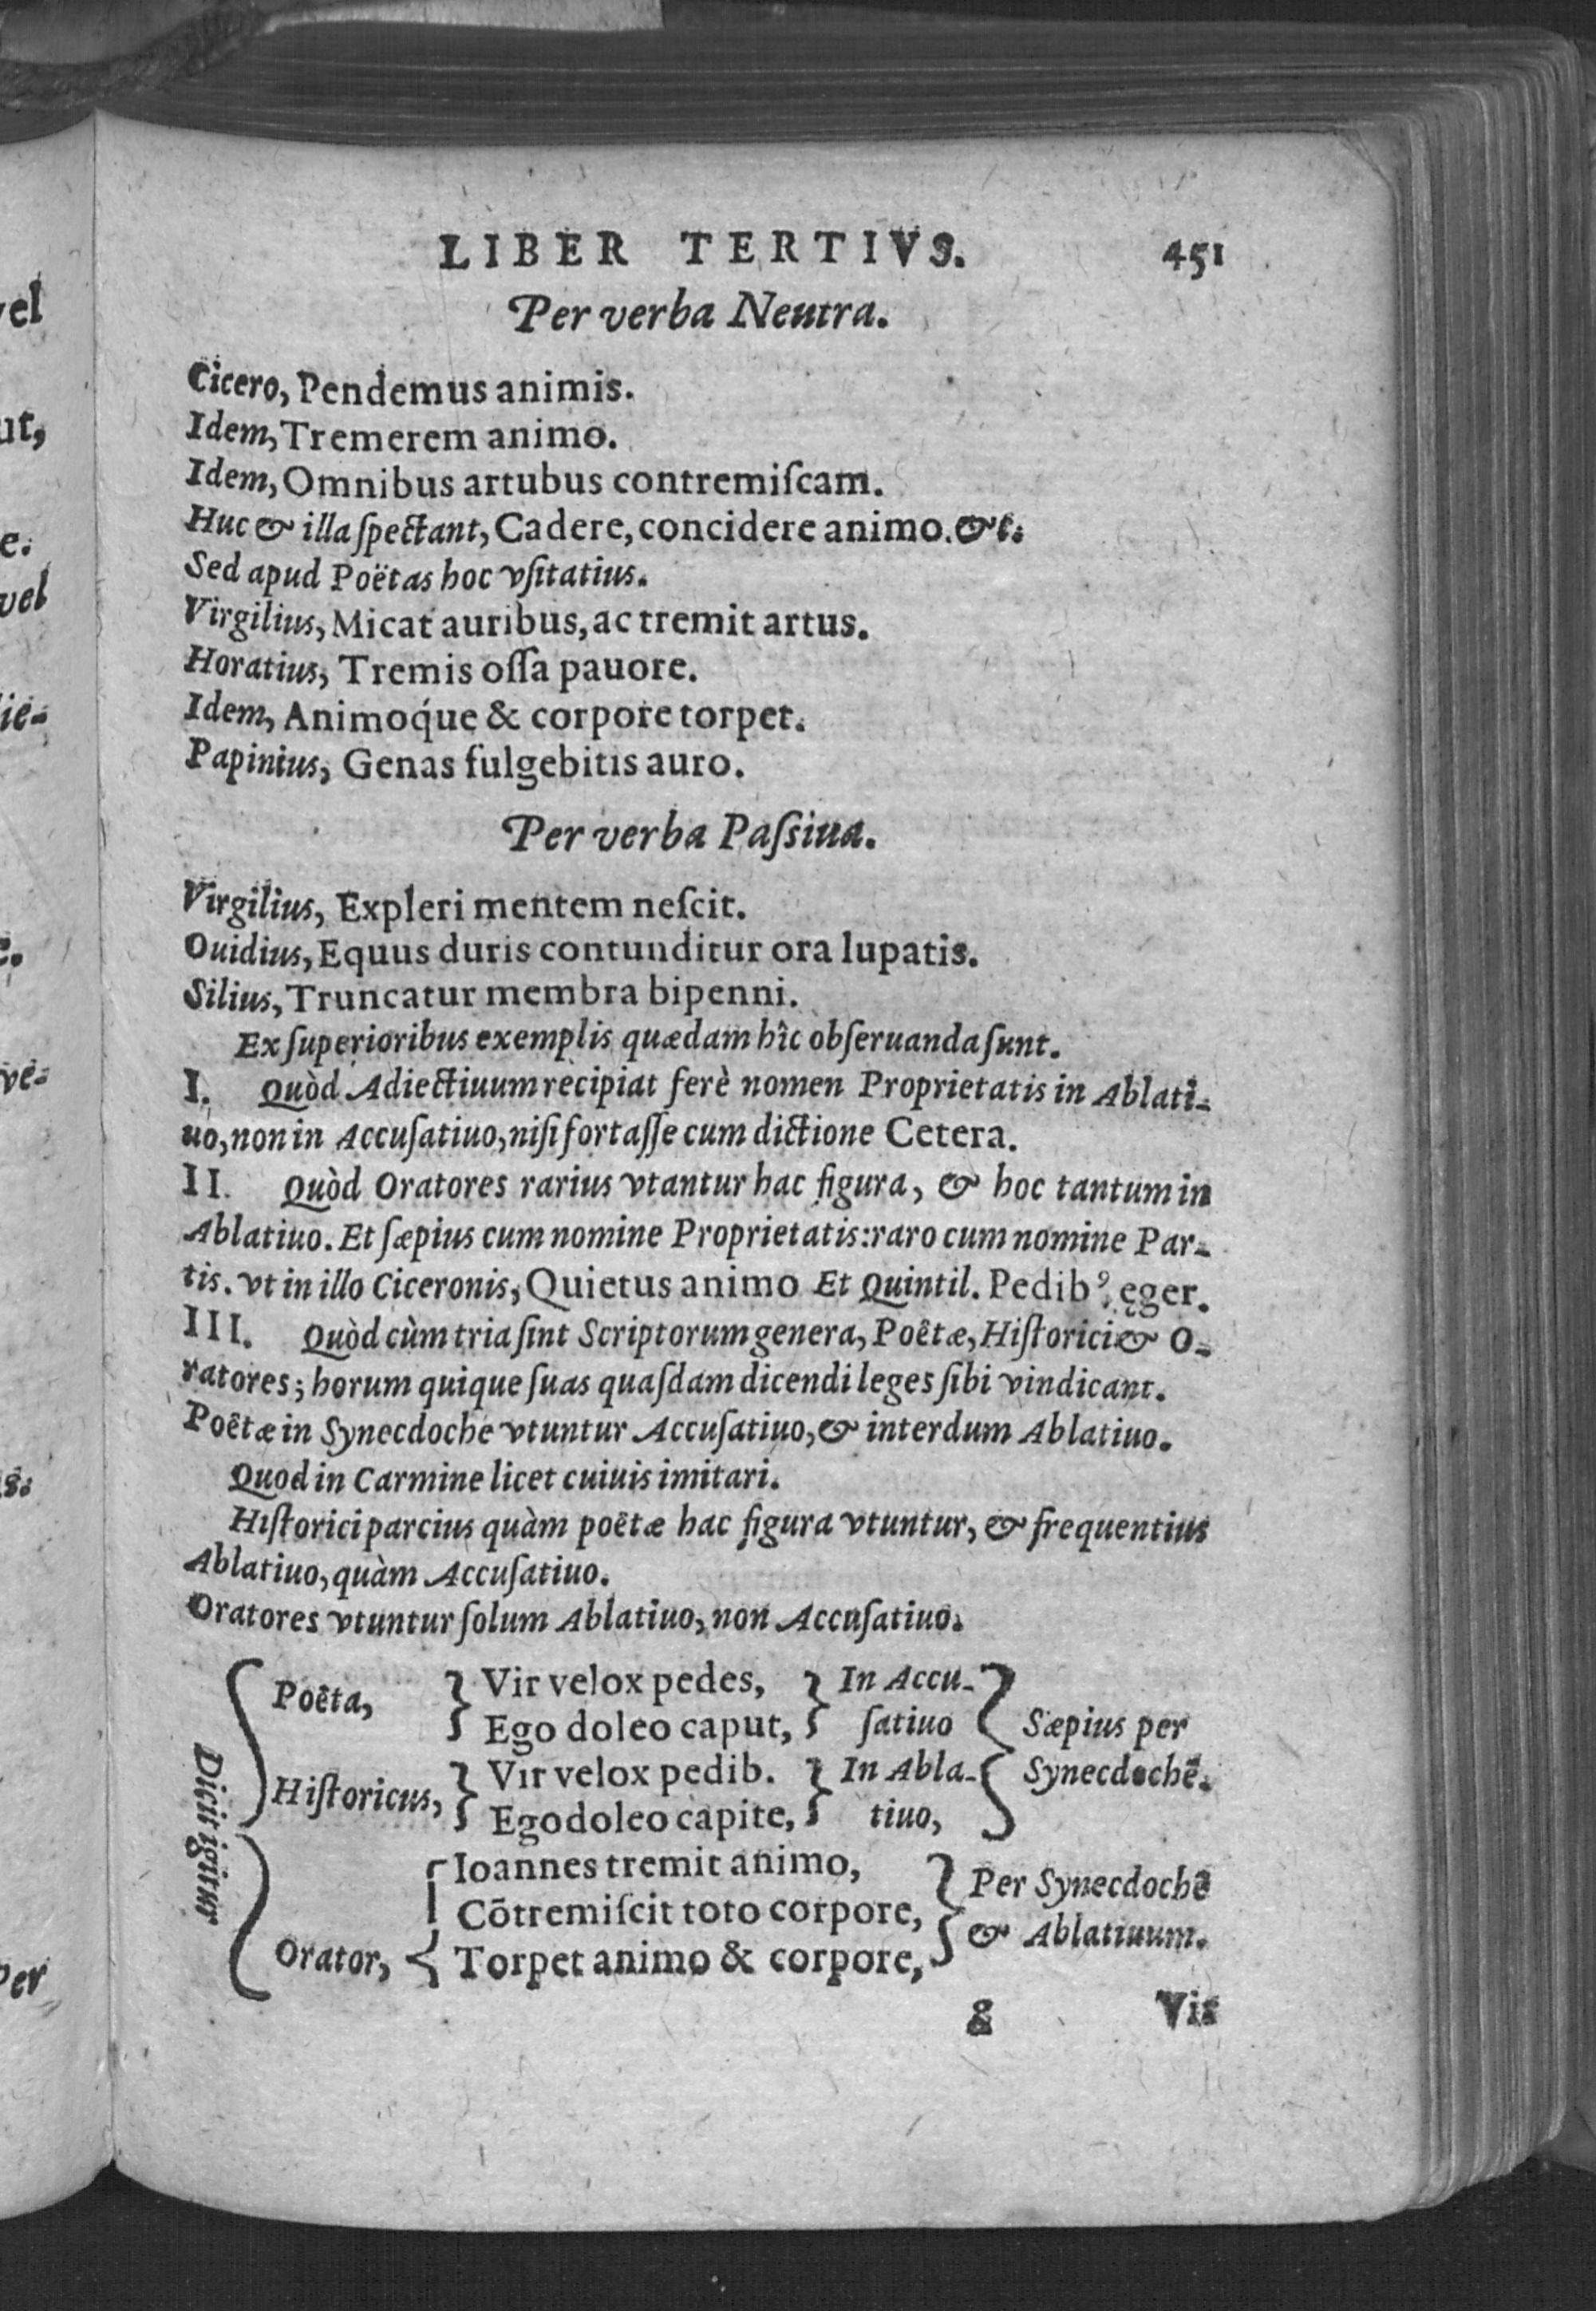 LIBER TERTIVS. 451
Per verba Neutra.
Cicero, Pendemus animis.
Idem, Tremerem animo.
Idem, Omnibus artubus contremiſcam.
Huc & illa ſpectant, Cadere, concidere animo. &c.
Sed apud Poëtas hoc vſitatius.
Virgilius, Micat auribus, ac tremit artus.
Horatius, Tremis oſſa pauore.
Idem, Animoq́ue & corpore torpet.
Papinius, Genas fulgebitis auro.
Per verba Paſsiua.
Virgilius, Expleri mentem neſcit.
Ouidius, Equus duris contunditur ora lupatis.
Silius, Truncatur membra bipenni.
Ex ſuperioribus exemplis quædam hîc obſeruanda ſunt.
I. Quòd Adiectiuum recipiat ferè nomen Proprietatis in Ablati-
uo, non in Accuſatiuo, niſi fortaſſe cum dictione Cetera.
II. Quòd Oratores rarius vtantur hac figura, & hoc tantum in
Ablatiuo. Et ſæpius cum nomine Proprietatis: raro cum nomine Par-
tis. vt in illo Ciceronis, Quietus animo Et Quintil. Pedibꝰ ęger.
III. Quòd cùm tria ſint Scriptorum genera, Poêtæ, Hiſtorici & O-
ratores; horum quique ſuas quaſdam dicendi leges ſibi vindicant.
Poêtæ in Synecdoche vtuntur Accuſatiuo, & interdum Ablatiuo.
Quod in Carmine licet cuiuis imitari.
Hiſtorici parcius quàm poëtæ hac figura vtuntur, & frequentius
Ablatiuo, quàm Accuſatiuo.
Oratores vtuntur ſolum Ablatiuo, non Accuſatiuo.
Dicit igitur
Poêta, } Vir velox pedes, } In Accu-
Ego doleo caput, ſatiuo Sæpius per
Hiſtoricus, } Vir velox pedib. } In Abla- Synecdochẽ.
Ego doleo capite, tiuo,
Ioannes tremit animo, Per Synecdochẽ
Cõtremiſcit toto corpore, & Ablatiuum.
Orator, Torpet animo & corpore,
& Vir
vel
ut,
e.
vel